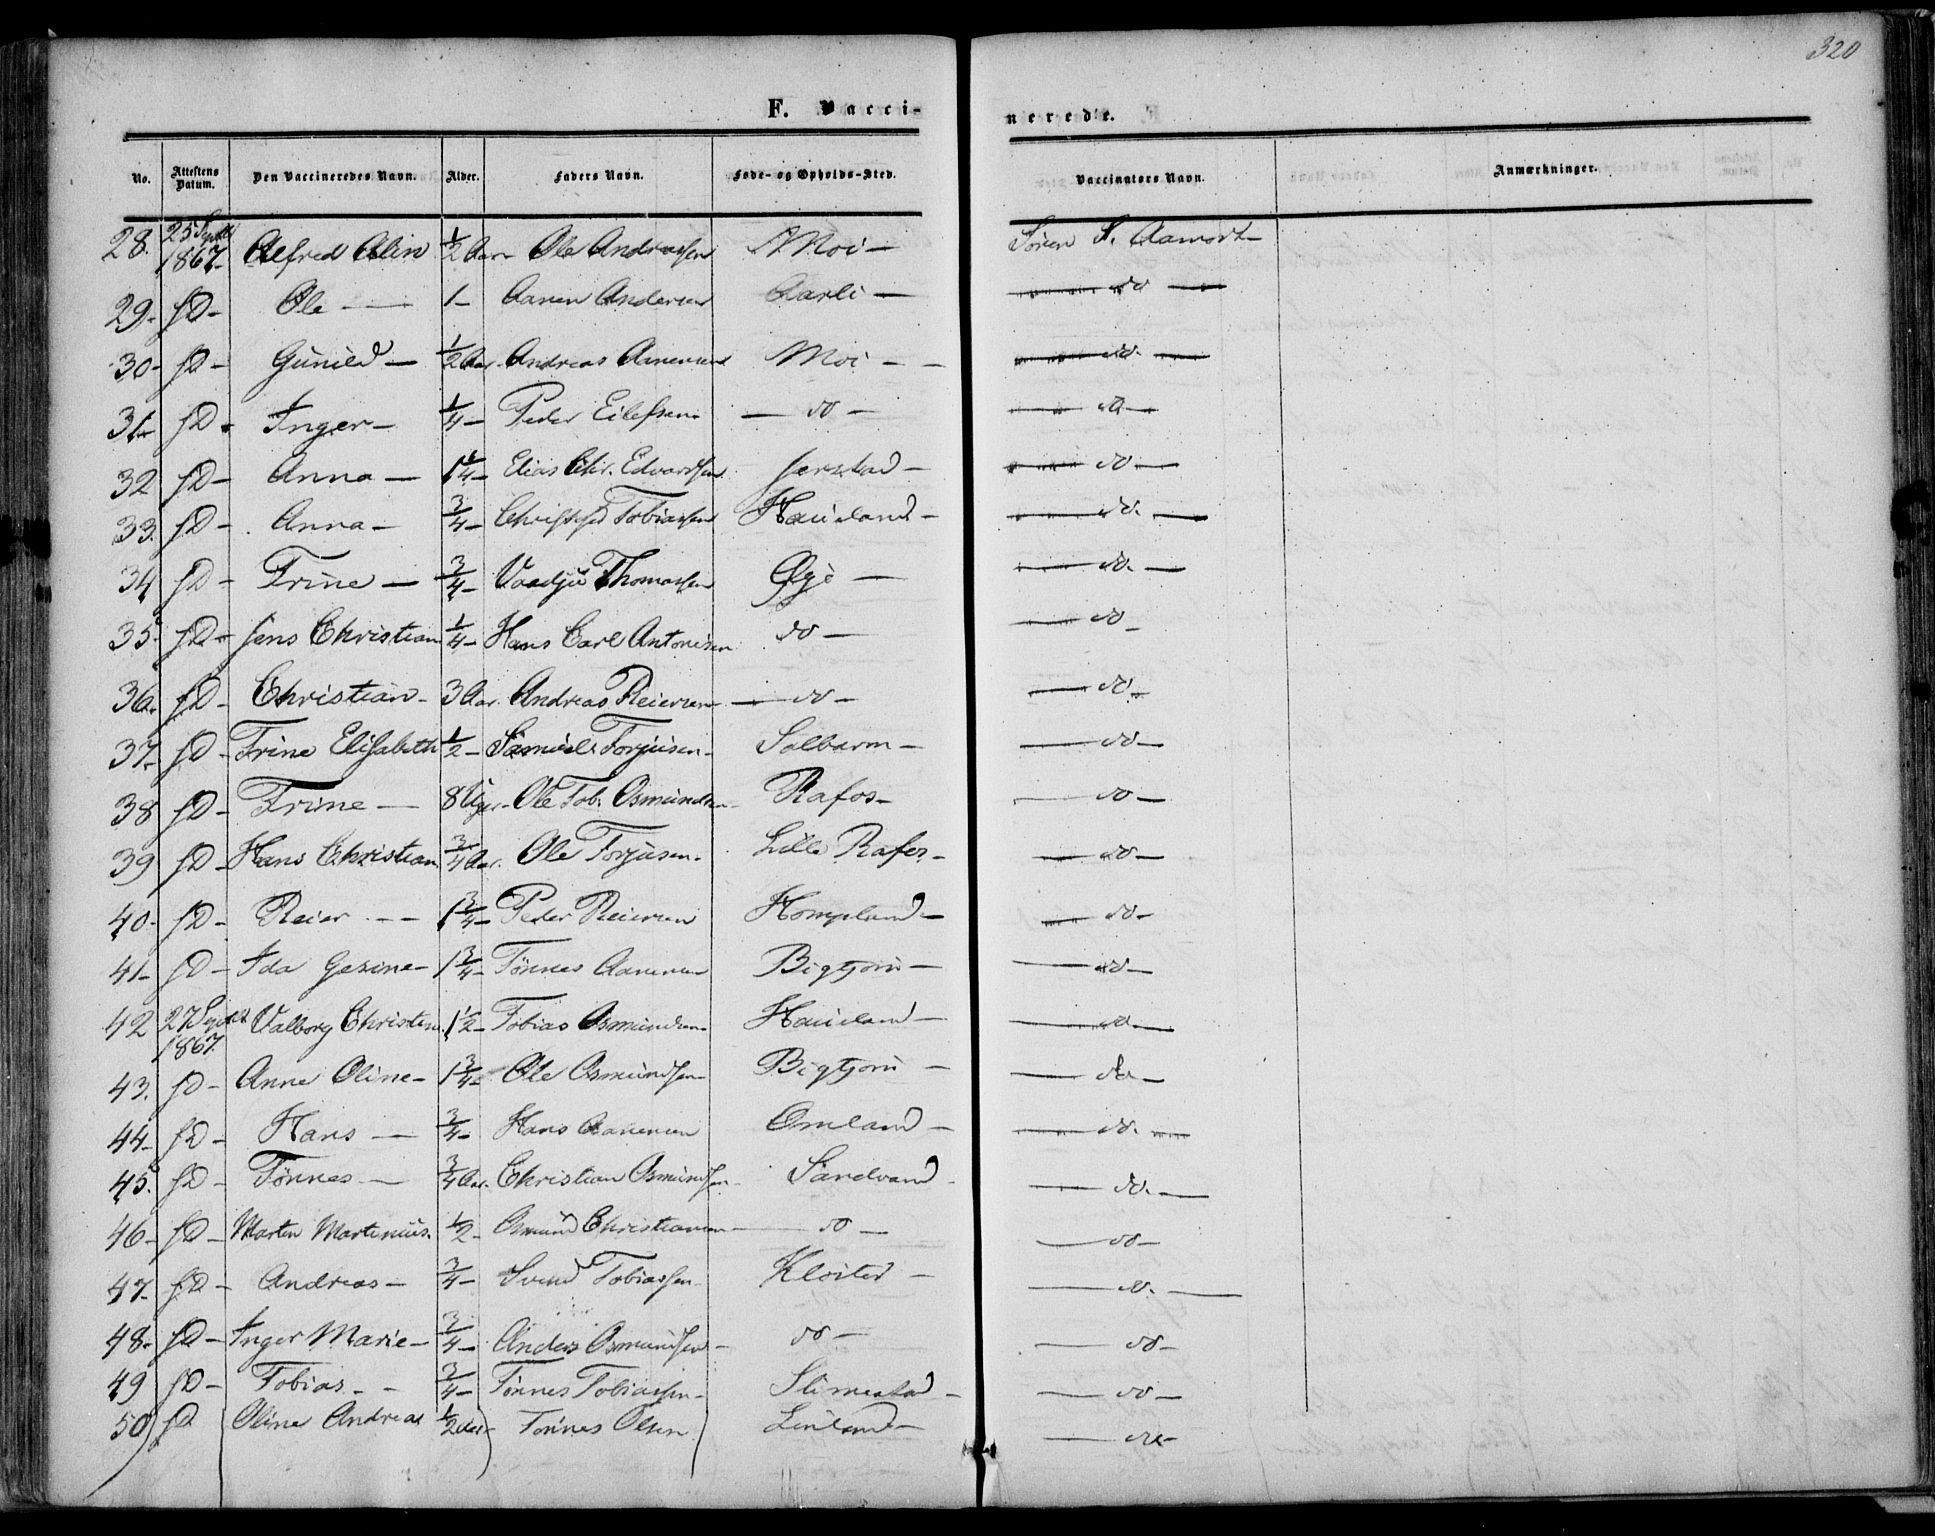 320
F. Vaccinerede.
No. Attestens Datum. Den Vaccineredes Navn. Alder. Faders Navn. Føde- og Opholds-Sted. Vaccinatørs Navn. Anmærkninger.
28. 25 Septbr 1867. Alfred Alin 1/2 Aar Ole Andreassen Moi – Søren S. Aamodt
29. fD – Ole 1 – Aanen Andersen Aarli – do
30 – fD – Gunild – 1/2 Aar. Andreas Aanensen Moi – do.
31. fD – Inger – 1/4 – Peder Eilefsen – do – do –
32 fD – Anna – 1 1/4 – Elias Chr. Edvardsen Jerstad – do –
33. fD – Anna – 3/4 – Christofer Tobiassen Haueland – do.
34 fD – Trine – 3/4 – Thomassen Øye – do. –
35. fD – Jens Christian 1/4 – Hans Carl Antonisen do – do –
36. fD – Christian – 3 Aar. Andreas Reiersen – do – do –
37 – fD – Trine Elisabeth 1/2 – Samuel Torjusen – Solbarm – do –
38 fD – Trine – 8 Uger – Ole Tob. Osmundsen Rafos – do –
39 fD – Hans Christian 3/4 Aar. Ole Torjusen – Lille Rafos – do –
40 – fD – Reier – 1 3/4 – Peder Reiersen Hompland – do –
41 – fD – Ida Gesine – 1 3/4 – Tønnes Aanensen Bigtjøn – do –
42 27 Septbr 1867. Valborg Christine 1 1/2 – Tobias Osmundsen Haueland – do. –
43. fD – Anne Oline – 1 3/4 – Ole Osmundsen – Bigtjøn – do –
44 – fD – Hans – 3/4 – Hans Aanensen Omland – do. –
45. fD – Tønnes – 3/4 Aar. Christian Osmundsen – Sandvand – do. –
46 – fD – Marten Martinius. 1/2 – Osmund Christiansen – do – do –
47 – fD – Andreas – 3/4 – Svend Tobiassen Kloster – do. –
48 – fD – Inger Marie – 3/4 – Anders Osmundsen – do – do –
49 fD – Tobias – 3/4 – Tønnes Tobiassen – Slimestad – do –
50 fD Oline Andrea 1/2 Aar Tønnes Olsen Linland – do –